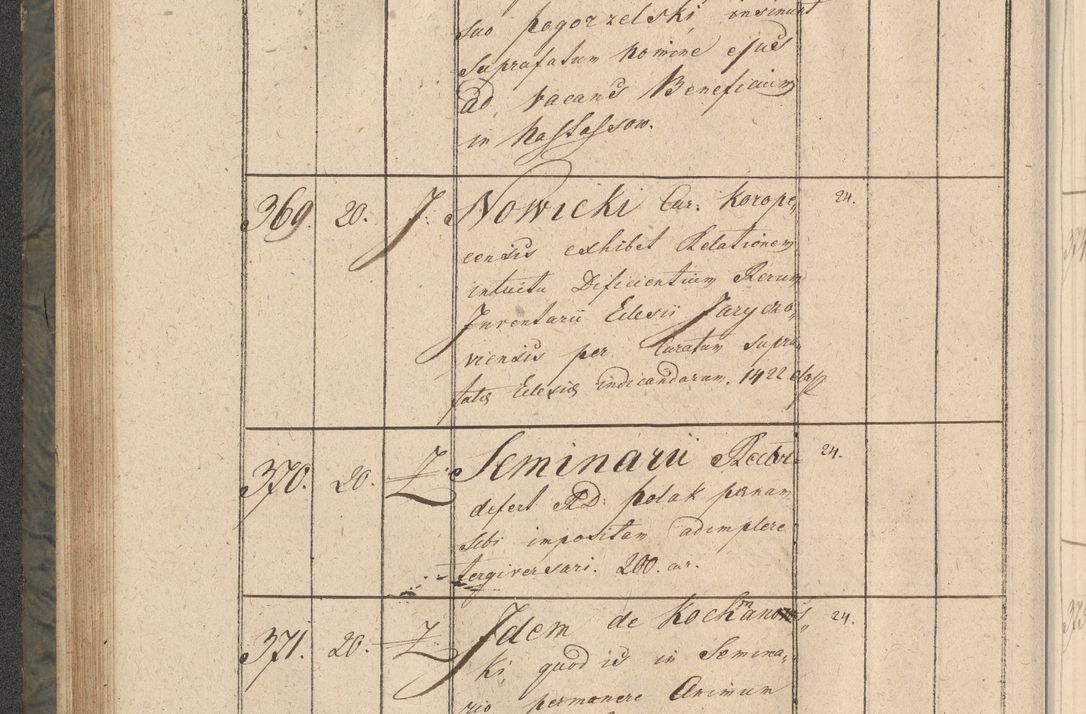 suo pogorzelski insinuat
suprafatum homine ejus
ad vacans Beneficium
in Hassassow.
369. 20. J. Nowicki Cur. Korope„ 24.
censis exhibet Relationem
intuitu Deficientium Rerum
Inventarii Eclesii Jaryczo„
viensis per Curatum supra„
fatis Eclesis indicandarum. 1422
370. 20. Z. Seminarii Rector 24.
defert RD. Polak penam
sibi impositam adimplere
tergiversari. 200. cur.
371. 20. Z. Idem de Kochanows„ 24.
ki quod is in Semina„
rio permanere Animum